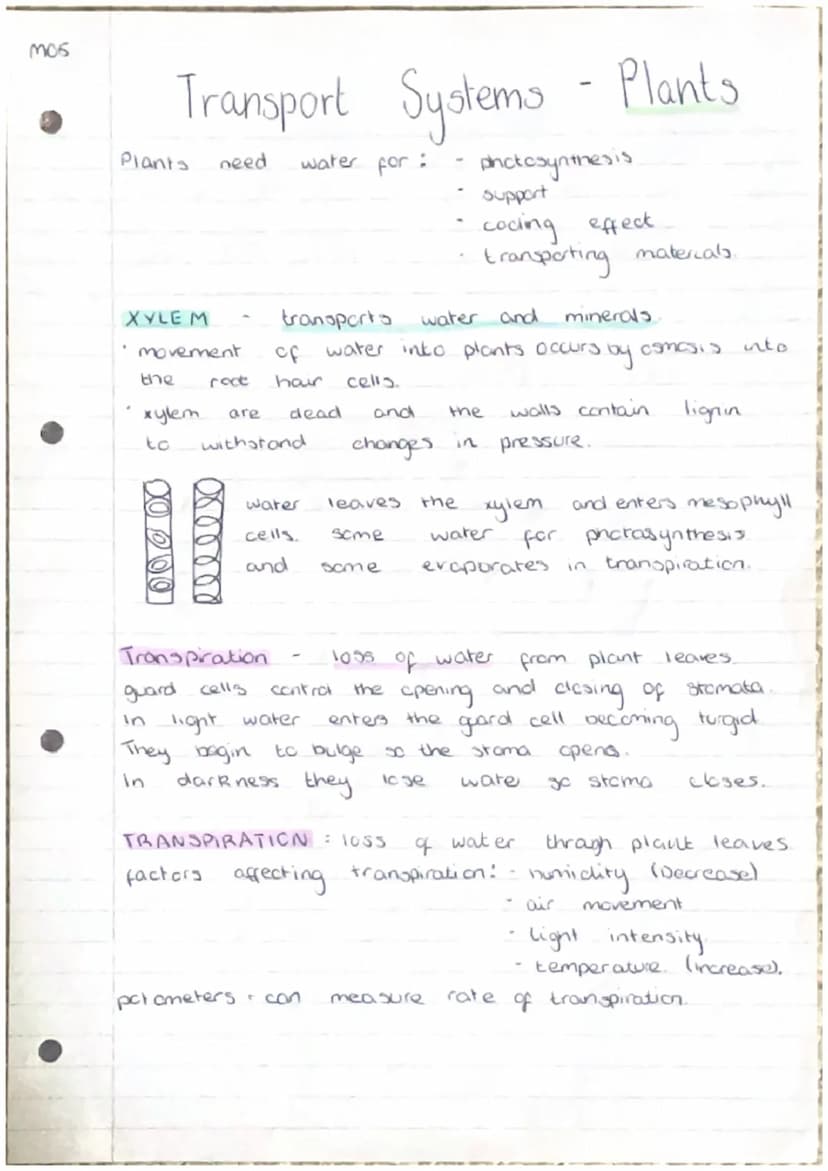 MC5
Transport Systems - Plants
Plants need water for : - photosynthesis
- support
- cooling effect
- transporting materials.
XYLEM - transports water and minerals
• movement of water into plants occurs by osmosis into
the root hair cells.
• xylem are dead and the walls contain lignin
to withstand changes in pressure.
water leaves the xylem and enters mesophyll
cells. some water for photosynthesis
and some evaporates in transpiration.
Transpiration - loss of water from plant leaves
guard cells control the opening and closing of stomata.
In light water enters the guard cell becoming turgid
They begin to bulge so the stoma opens.
In darkness they lose wate so stoma closes.
TRANSPIRATION : loss of water through plant leaves
factors affecting transpiration: - humidity (Decrease)
- air movement
- light intensity
- temperature. (increase).
potometers • can measure rate of transpiration.